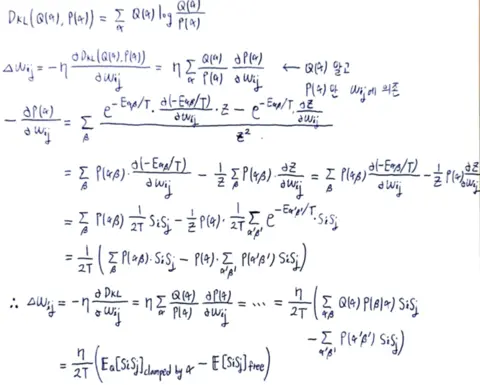 D_KL(Q(α), P(α)) = Σ_α Q(α) log Q(α)/P(α)
ΔW_ij = -η ∂D_KL(Q(α), P(α))/∂W_ij = η Σ_α Q(α)/P(α) ∂P(α)/∂W_ij ← Q(α) 말고
P(α)만 W_ij에 의존
- ∂P(α)/∂W_ij = Σ_β (e^{-E_αβ/T} · ∂(-E_αβ/T)/∂W_ij · Z - e^{-E_αβ/T} · ∂Z/∂W_ij) / Z²
= Σ_β P(αβ) · ∂(-E_αβ/T)/∂W_ij - 1/Z Σ_β P(αβ) · ∂Z/∂W_ij = Σ_β P(αβ) ∂(-E_αβ/T)/∂W_ij - 1/Z P(α) ∂Z/∂W_ij
= Σ_β P(αβ) 1/2T S_iS_j - 1/Z P(α) · 1/2T Σ_α'β' e^{-E_α'β'/T} · S_iS_j
= 1/2T (Σ_β P(αβ) · S_iS_j - P(α) · Σ_α'β' P(α'β') S_iS_j)
∴ ΔW_ij = -η ∂D_KL/∂W_ij = η Σ_α Q(α)/P(α) ∂P(α)/∂W_ij = ··· = η/2T (Σ_αβ Q(α) P(β|α) S_iS_j
- Σ_α'β' P(α'β') S_iS_j)
= η/2T (E_Q[S_iS_j]_clamped by α - E[S_iS_j]_free)